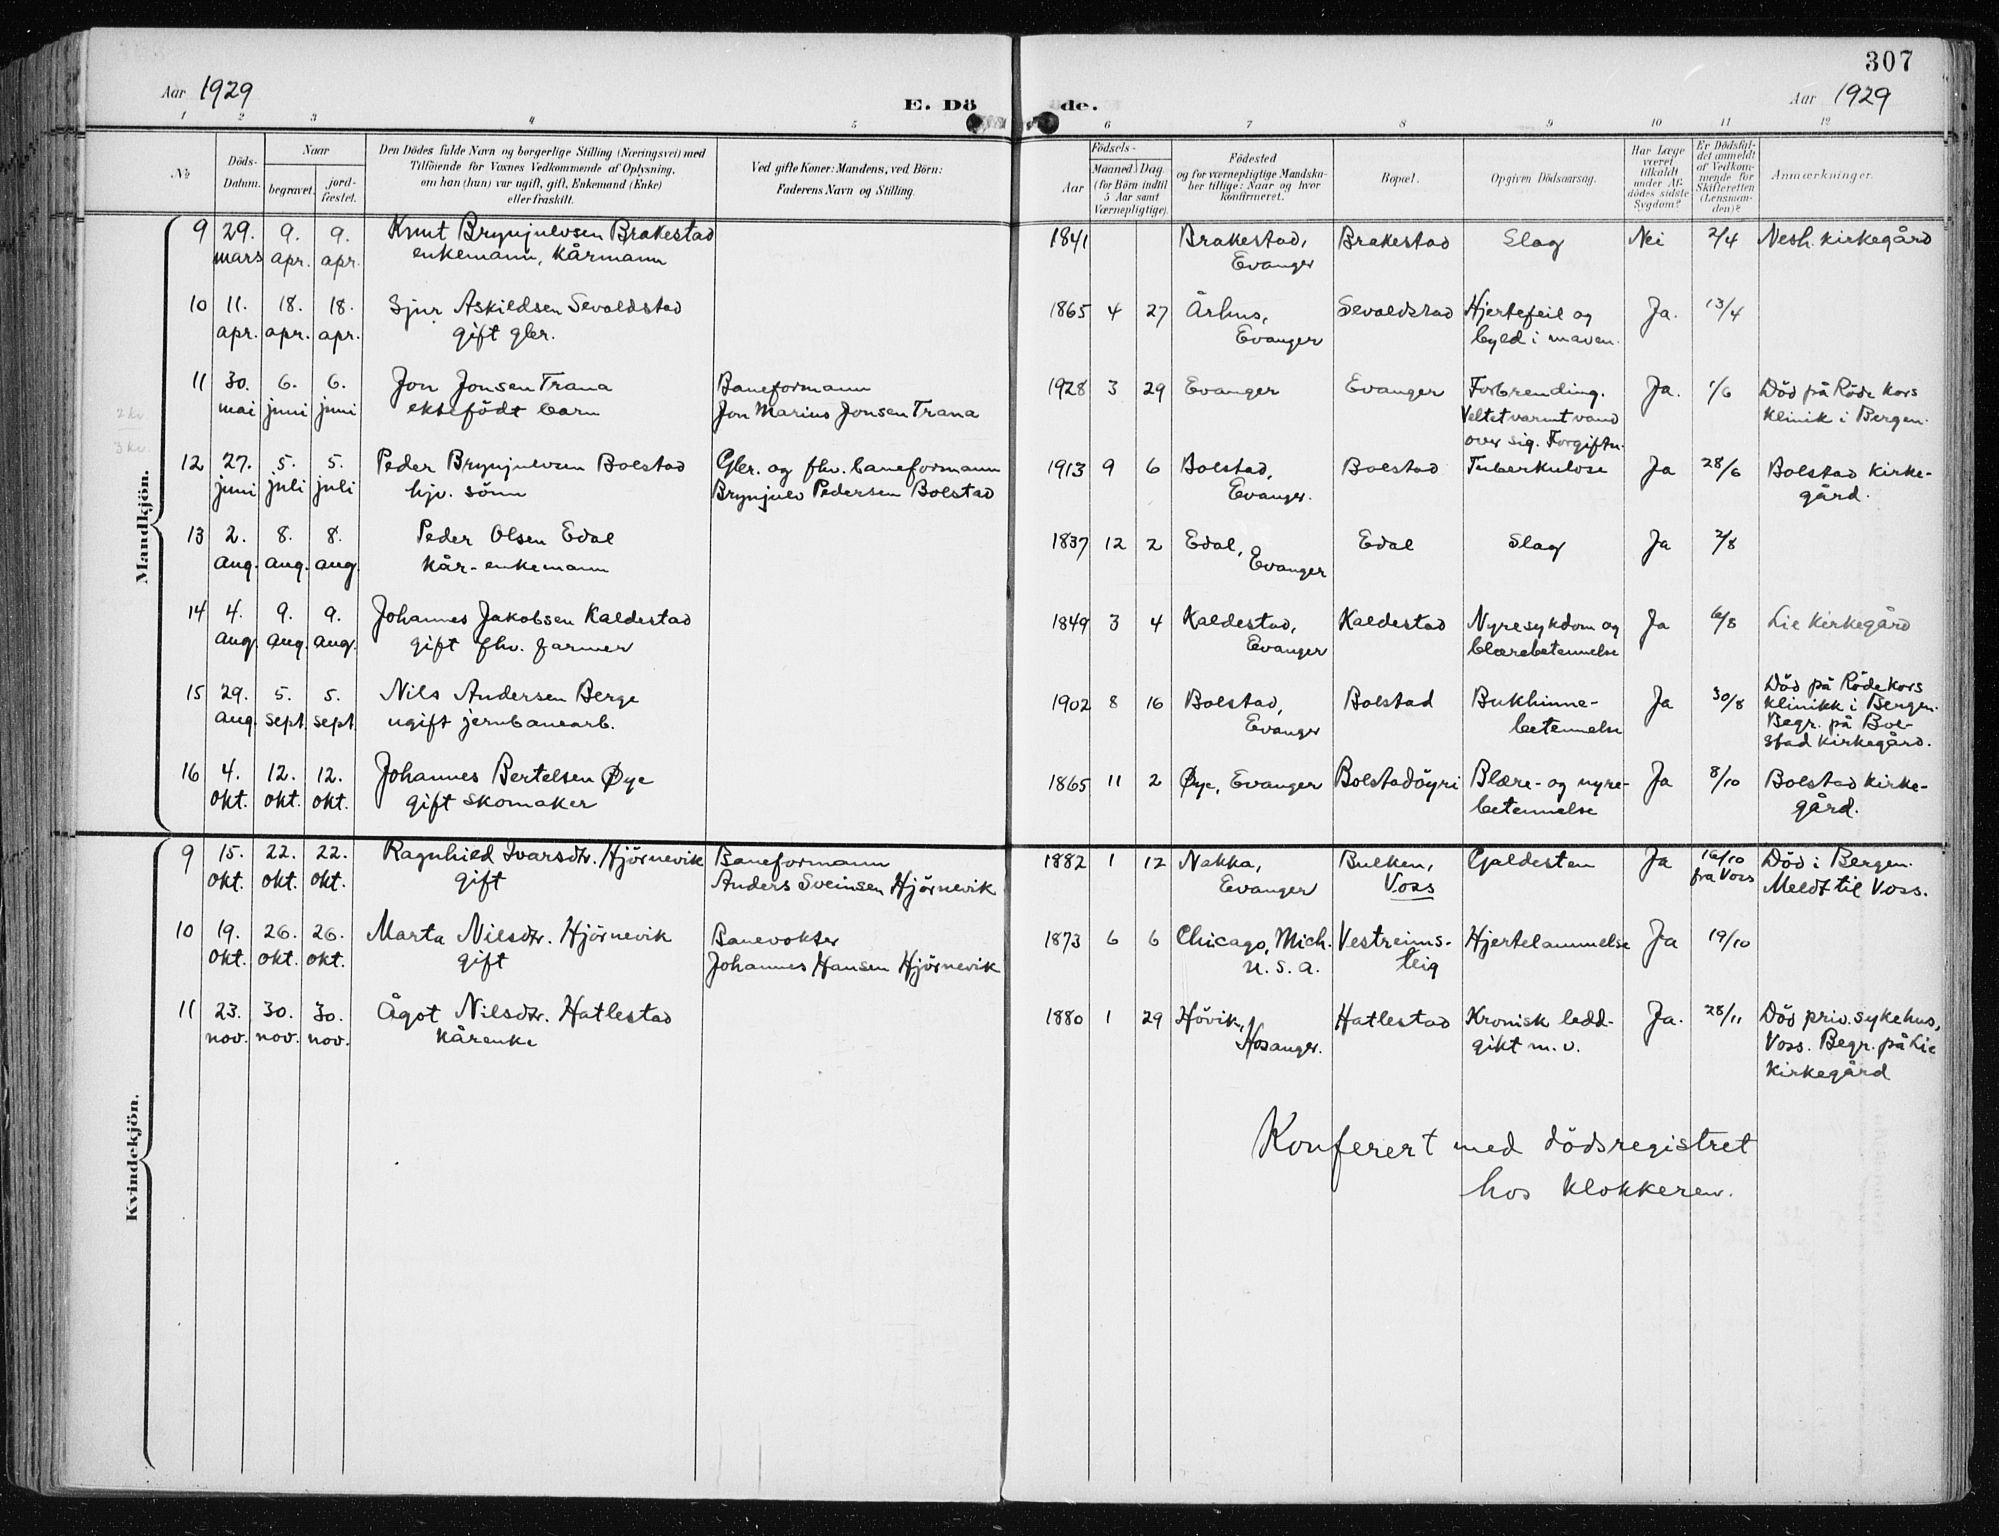 307
Aar 1929
E. Dö de.
Aar 1929
1 2 3 4 5 6 7 8 9 10 11 12
№
Döds-Datum.
Naar
begravet.
jord-fæstet.
Den Dödes fulde Navn og borgerlige Stilling (Næringsvei) med
Tilföiende for Voxnes Vedkommende af Oplysning,
om han (hun) var ugift, gift, Enkemand (Enke)
eller fraskilt.
Ved gifte Koner: Mandens, ved Börn:
Faderens Navn og Stilling.
Födsels-
Aar
Maaned. Dag.
(for Börn indtil
5 Aar samt
Værnepligtige).
Födested
og for værnepligtige Mandska-
ber tillige: Naar og hvor
konfirmeret.
Bopæl.
Opgiven Dödsaarsag.
Har Læge
været
tilkaldt
under Af-
dödes sidste
Sygdom?
Er Dödsfal-
det anmeldt
af Vedkom-
mende for
Skifteretten
(Lensman-
den)?
Anmærkninger.
Mandkjön.
9 29. 9. 9. Knut Brynjulvsen Brakestad 1841 Brakestad, Brakestad Slag Nei 2/4 Nesh. kirkegård
mars apr. apr. enkemann, kårmann Evanger
10 11. 18. 18. Sjur Askildsen Sevaldstad 1865 4 27 Århus, Sevaldstad Hjertefeil og Ja. 13/4
apr. apr. apr. gift gbr. Evanger byld i maven.
11 30. 6. 6. Jon Jonsen Trana Baneformann 1928 3 29 Evanger Evanger Forbrending. Ja. 1/6 Död på Röde Kors
mai juni juni ektefödt barn Jon Marius Jonsen Trana Veltet varmt vand klinik i Bergen.
2 kv
3 kv.
over sig. Forgiftn.
12 27. 5. 5. Peder Brynjulvsen Bolstad Gbr. og fhv. baneformann 1913 9 6 Bolstad, Bolstad Tuberkulose Ja 28/6 Bolstad kirke-
juni juli juli hjv. sönn Brynjulv Pedersen Bolstad Evanger. gård.
13 2. 8. 8. Peder Olsen Edal 1837 12 2 Edal, Edal Slag Ja 2/8
aug. aug. aug. kår-enkemann Evanger
14 4. 9. 9. Johannes Jakobsen Kaldestad 1849 3 4 Kaldestad, Kaldestad Nyresykdom og Ja 6/8 Lie kirkegård
aug. aug. aug. gift fhv. farmer Evanger blærebetennelse
15 29. 5. 5. Nils Andersen Berge 1902 8 16 Bolstad, Bolstad Bukhinne- Ja 30/8 Död på Röde kors
aug. sept. sept. ugift jernbanearb. Evanger betennelse klinikk i Bergen.
Begr. på Bol-
stad kirkegård.
16 4. 12. 12. Johannes Bertelsen Øye 1865 11 2 Øye, Evanger Bolstadöyri Blære- og nyre- Ja 8/10 Bolstad kirke-
okt. okt. okt. gift skomaker betennelse gård.
Kvindekjön.
9 15. 22. 22. Ragnhild Ivarsdtr. Hjörnevik Baneformann 1882 1 12 Nakka, Bulken, Galdesten Ja 16/10 Död i Bergen.
okt. okt. okt. gift Anders Sveinsen Hjörnevik Evanger Voss fra Voss Meldt til Voss.
10 19. 26. 26. Marta Nilsdtr. Hjörnevik Banevokter 1873 6 6 Chicago, Mich. Vestreims- Hjertelammelse Ja 19/10
okt. okt. okt. gift Johannes Hansen Hjörnevik U.S.A. teig
11 23. 30. 30. Ågot Nilsdtr. Hatlestad 1880 1 29 Hövik, Hatlestad Kronisk ledd- Ja. 28/11 Död priv. sykehus,
nov. nov. nov. kårenke Hosanger. gikt m.v. Voss. Begr. på Lie
kirkegård
Konferert med dödsregistret
hos klokkeren.